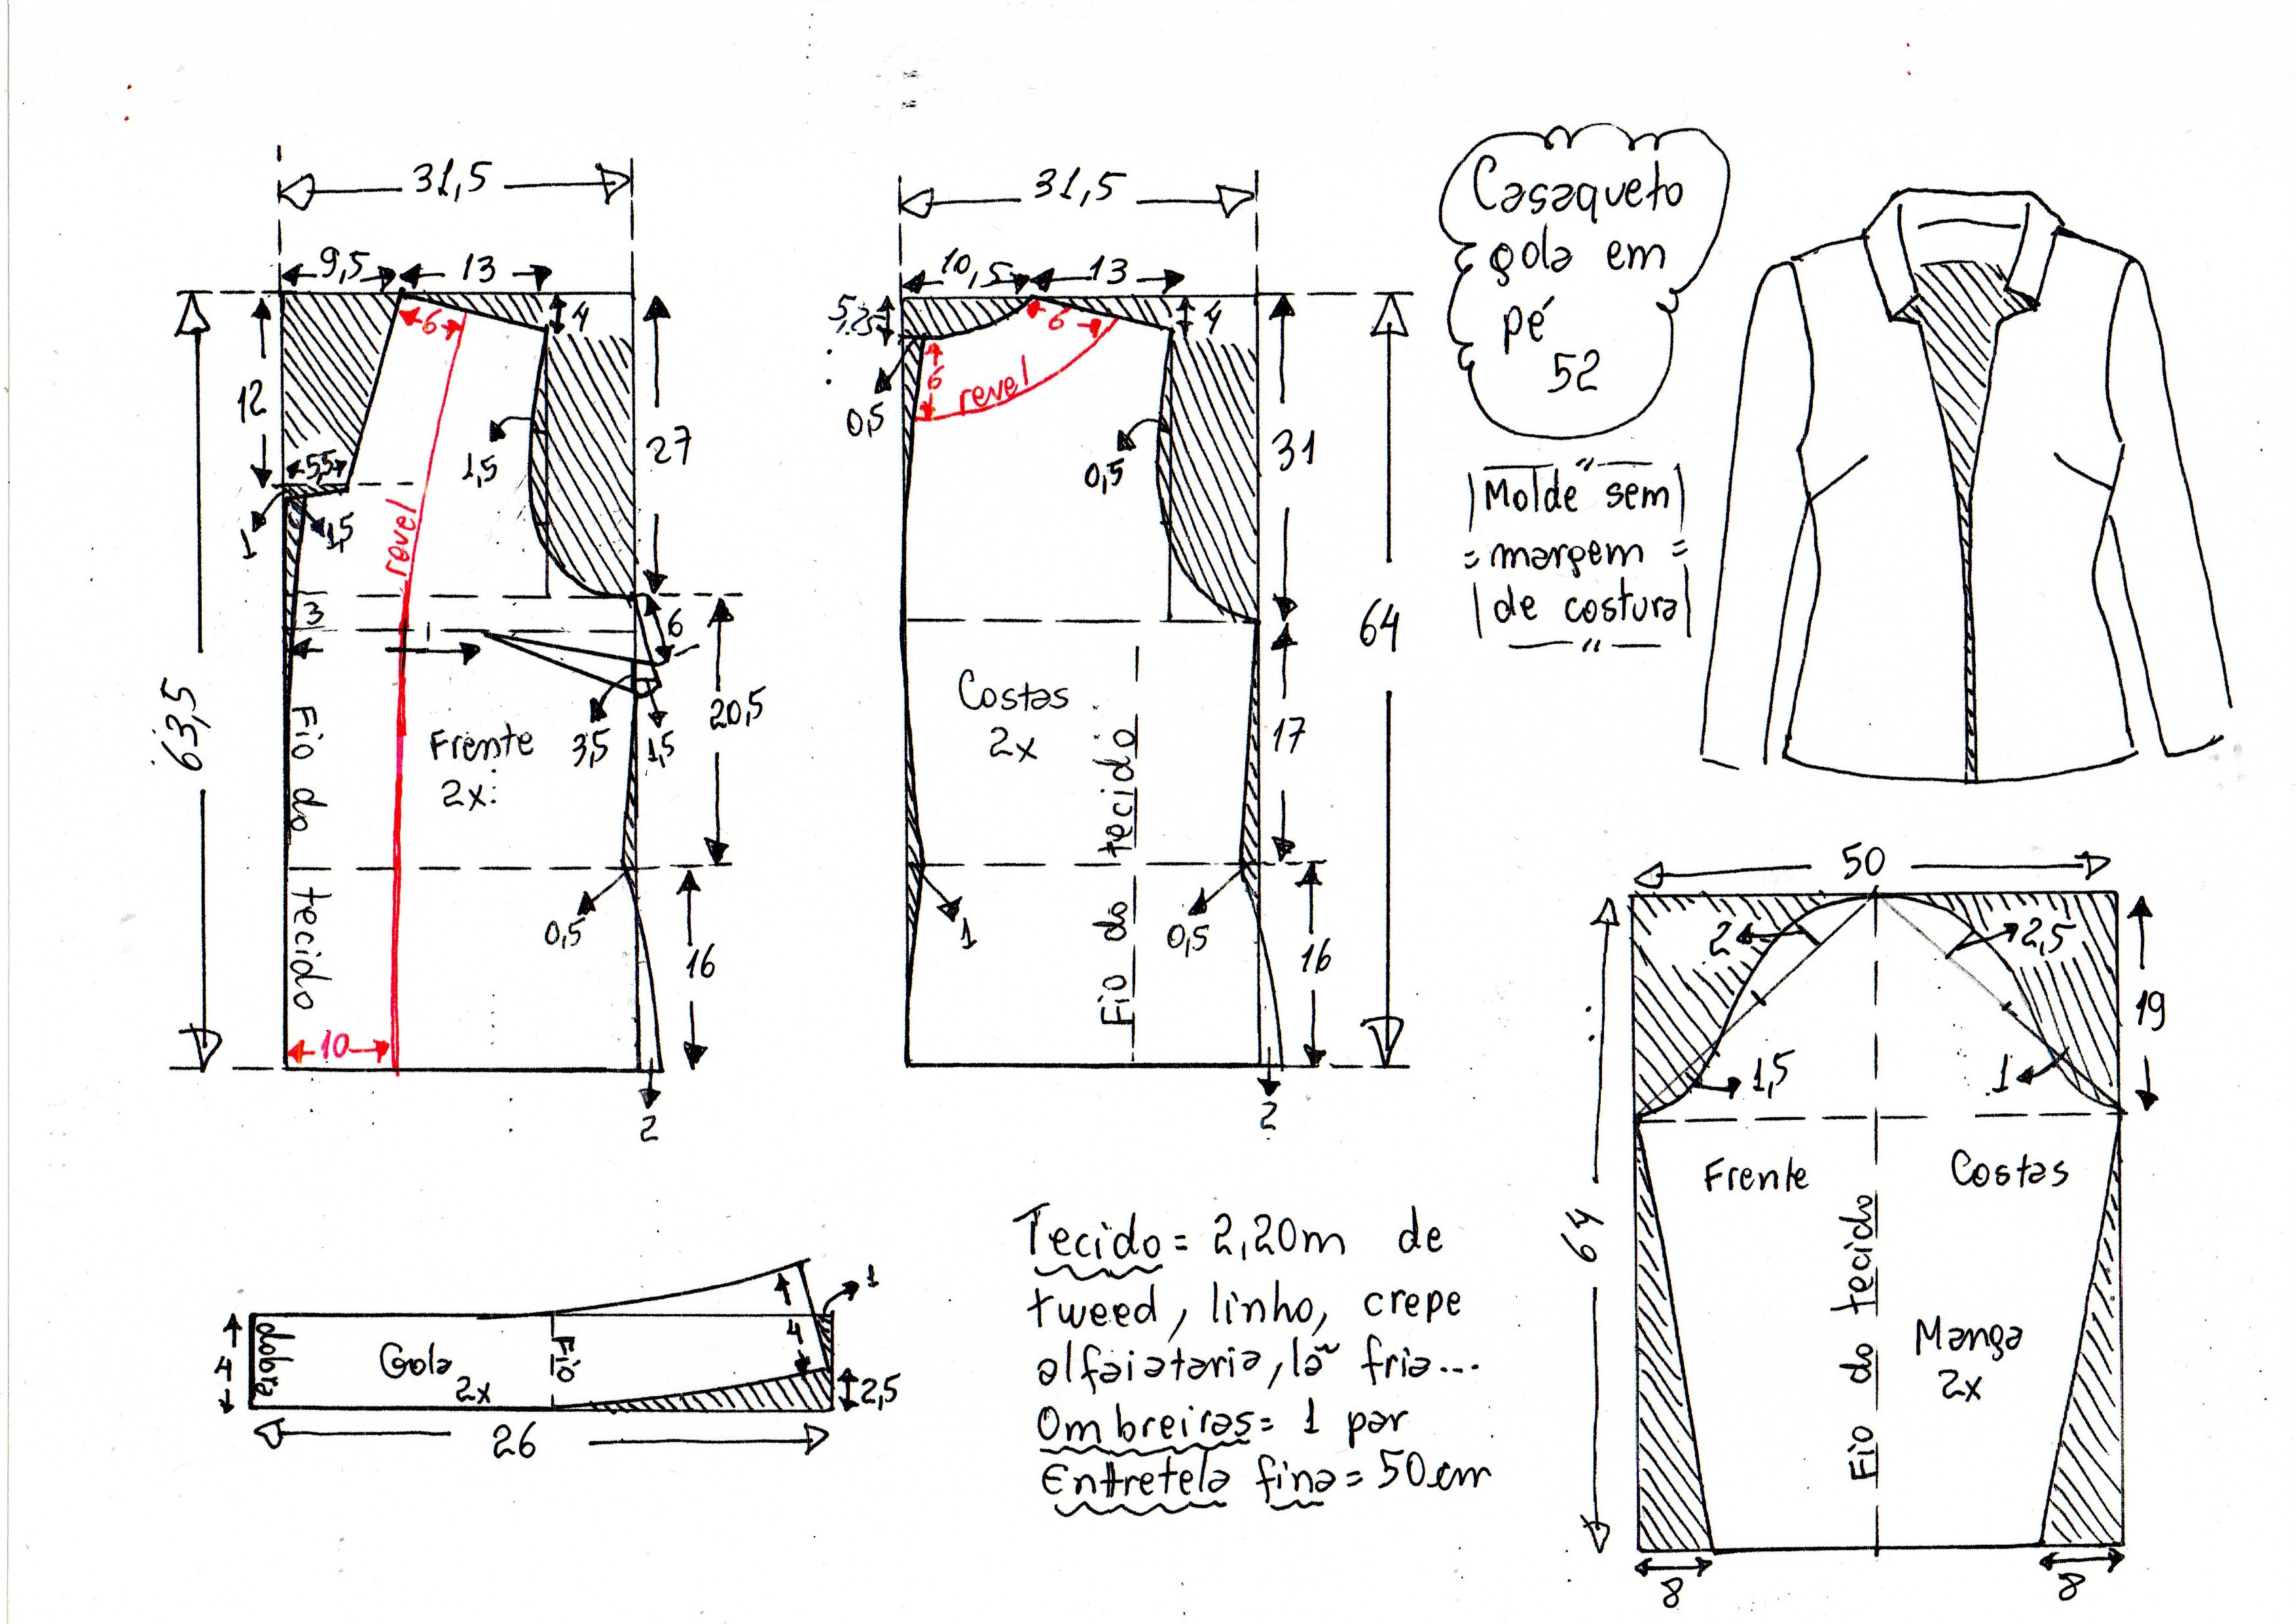 31,5
9,5
13
6
4
12
27
5,5
1,5
1
1,5
revel
3
6
63,5
20,5
3,5
1,5
Frente
2x
Fio do tecido
0,5
16
10
2
31,5
10,5
13
5,25
6
4
6
revel
0,5
0,5
31
64
Costas
2x
17
Fio do tecido
1
0,5
16
2
Casaqueto
gola em
pé
52
Molde sem
margem
de costura
50
2
2,5
19
1,5
1
64
Frente
Costas
Fio do tecido
Manga
2x
8
8
dobra
4
Gola 2x
Fio
4
1
2,5
26
Tecido = 2,20m de
tweed, linho, crepe
alfaiataria, lã fria...
Ombreiras = 1 par
Entretela fina = 50cm